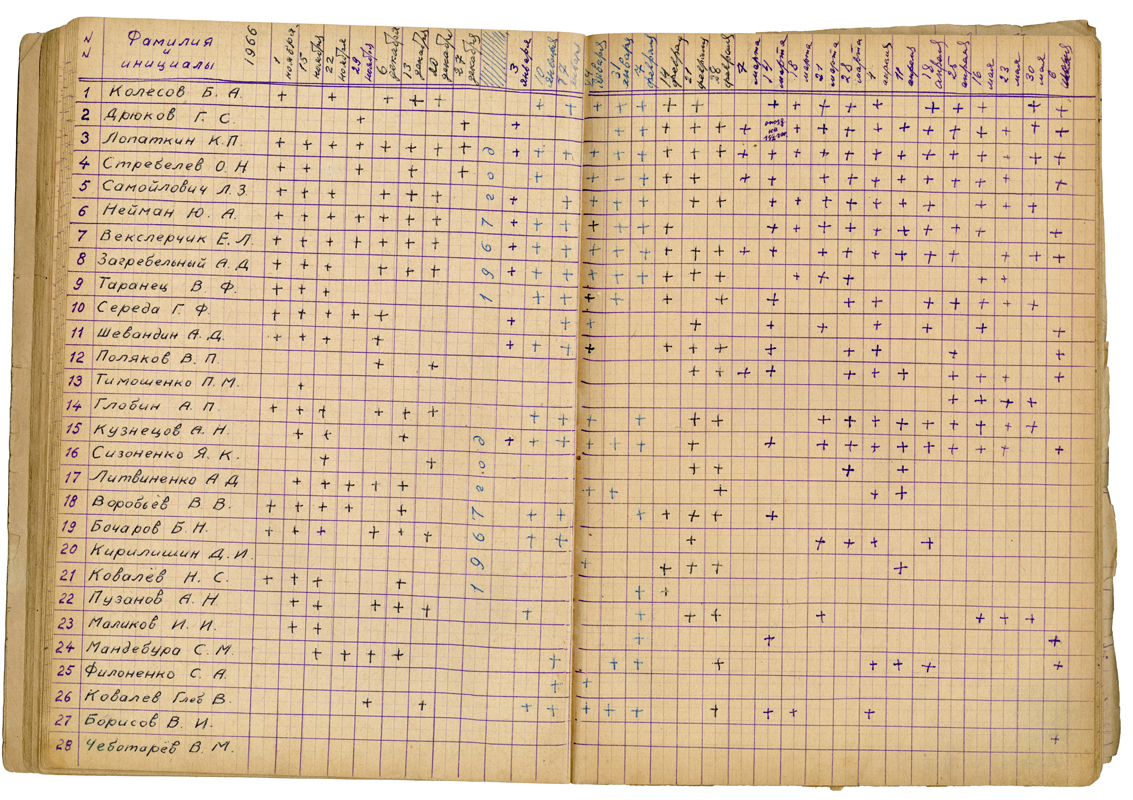 N N
Фамилия
и
инициалы
1966
1 ноября
15 ноября
22 ноября
29 ноября
6 декабря
13 декабря
20 декабря
27 декабря
3 января
10 января
17 января
24 января
31 января
7 февраля
14 февраля
21 февраля
28 февраля
7 марта
14 марта
18 марта
21 марта
28 марта
4 апреля
11 апреля
18 апреля
25 апреля
16 мая
23 мая
30 мая
6
1 Колесов Б. А.
2 Дрюков Г. С.
3 Лопаткин К.П.
4 Стребелев О. Н
5 Самойлович Л. З.
6 Нейман Ю. А.
7 Векслерчик Е. Л.
8 Загребельный А. Д
9 Таранец В. Ф.
10 Середа Г. Ф.
11 Шевандин А. Д.
12 Поляков В. П.
13 Тимошенко П. М.
14 Глобин А. П.
15 Кузнецов А. Н.
16 Сизоненко Я. К.
17 Литвиненко А Д
18 Воробьёв В. В.
19 Бочаров Б. Н.
20 Кирилишин Д. И.
21 Ковалёв Н. С.
22 Пузанов А. Н
23 Маликов И. И.
24 Мандебура С. М.
25 Филоненко С. А.
26 Ковалев Глеб В.
27 Борисов В. И.
28 Чеботарёв В. М.
1967 год
1967 год